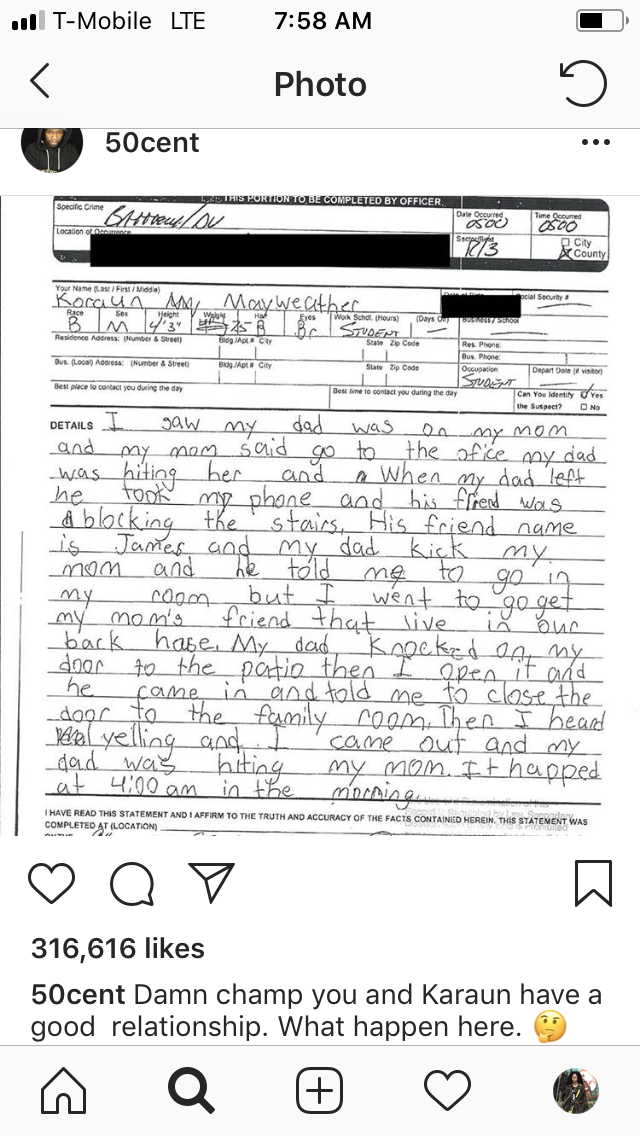 T-Mobile LTE 7:58 AM
Photo
50cent
THIS PORTION TO BE COMPLETED BY OFFICER
Specific Crime Battery/DV
Date Occurred 0500
Time Occurred 0500
Location of Occurrence
Sector/Beat R/3
City
County
Your Name (Last / First / Middle)
Koraun Mayweather
Social Security #
Race B
Sex M
Height 4'3"
Weight 75
Hair B
Eyes Br
Work Schdl. (Hours) STUDENT
(Days Off)
Business / School
Residence Address: (Number & Street)
Bldg./Apt.# City
State Zip Code
Res. Phone:
Bus. Phone:
Bus. (Local) Address: (Number & Street)
Bldg./Apt.# City
State Zip Code
Occupation STUDENT
Depart Date (if visitor)
Best place to contact you during the day
Best time to contact you during the day
Can You Identify the Suspect?
Yes
No
DETAILS I saw my dad was on my mom
and my mom said go to the ofice my dad
was hiting her and When my dad left
he took my phone and his friend was
blocking the stairs. His friend name
is James and my dad kick my
mom and he told me to go in
my room but I went to go get
my mom's friend that live in our
back hase. My dad knocked on my
door to the patio then I open it and
he came in and told me to close the
door to the family room. Then I heard
yelling and I came out and my
dad was hiting my mom. It happed
at 4:00 am in the morning.
I HAVE READ THIS STATEMENT AND I AFFIRM TO THE TRUTH AND ACCURACY OF THE FACTS CONTAINED HEREIN. THIS STATEMENT WAS
COMPLETED AT (LOCATION)
316,616 likes
50cent Damn champ you and Karaun have a
good relationship. What happen here. 🤔